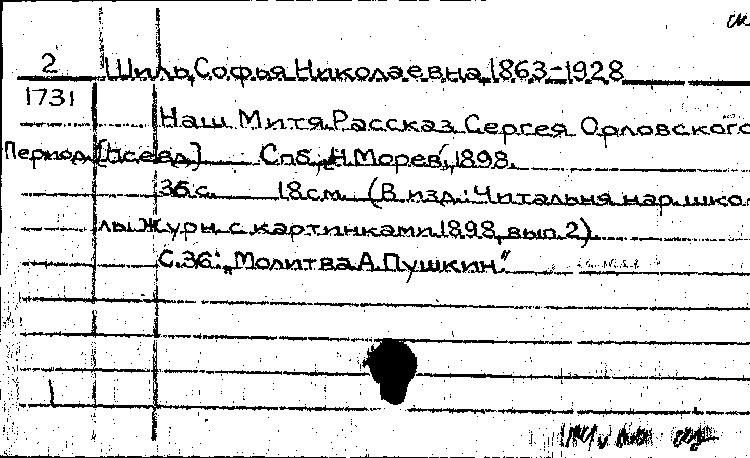 2 Шиль, Софья Николаевна, 1863-1928
1731
Наш Митя. Рассказ Сергея Орловского
Период. [псевд.] Спб., Н. Морев, 1898.
36 с. 18 см. (В изд.: Читальня нар. шко-
лы. Журн. с картинками. 1898, вып. 2).
С. 36: „Молитва А. Пушкин."
1